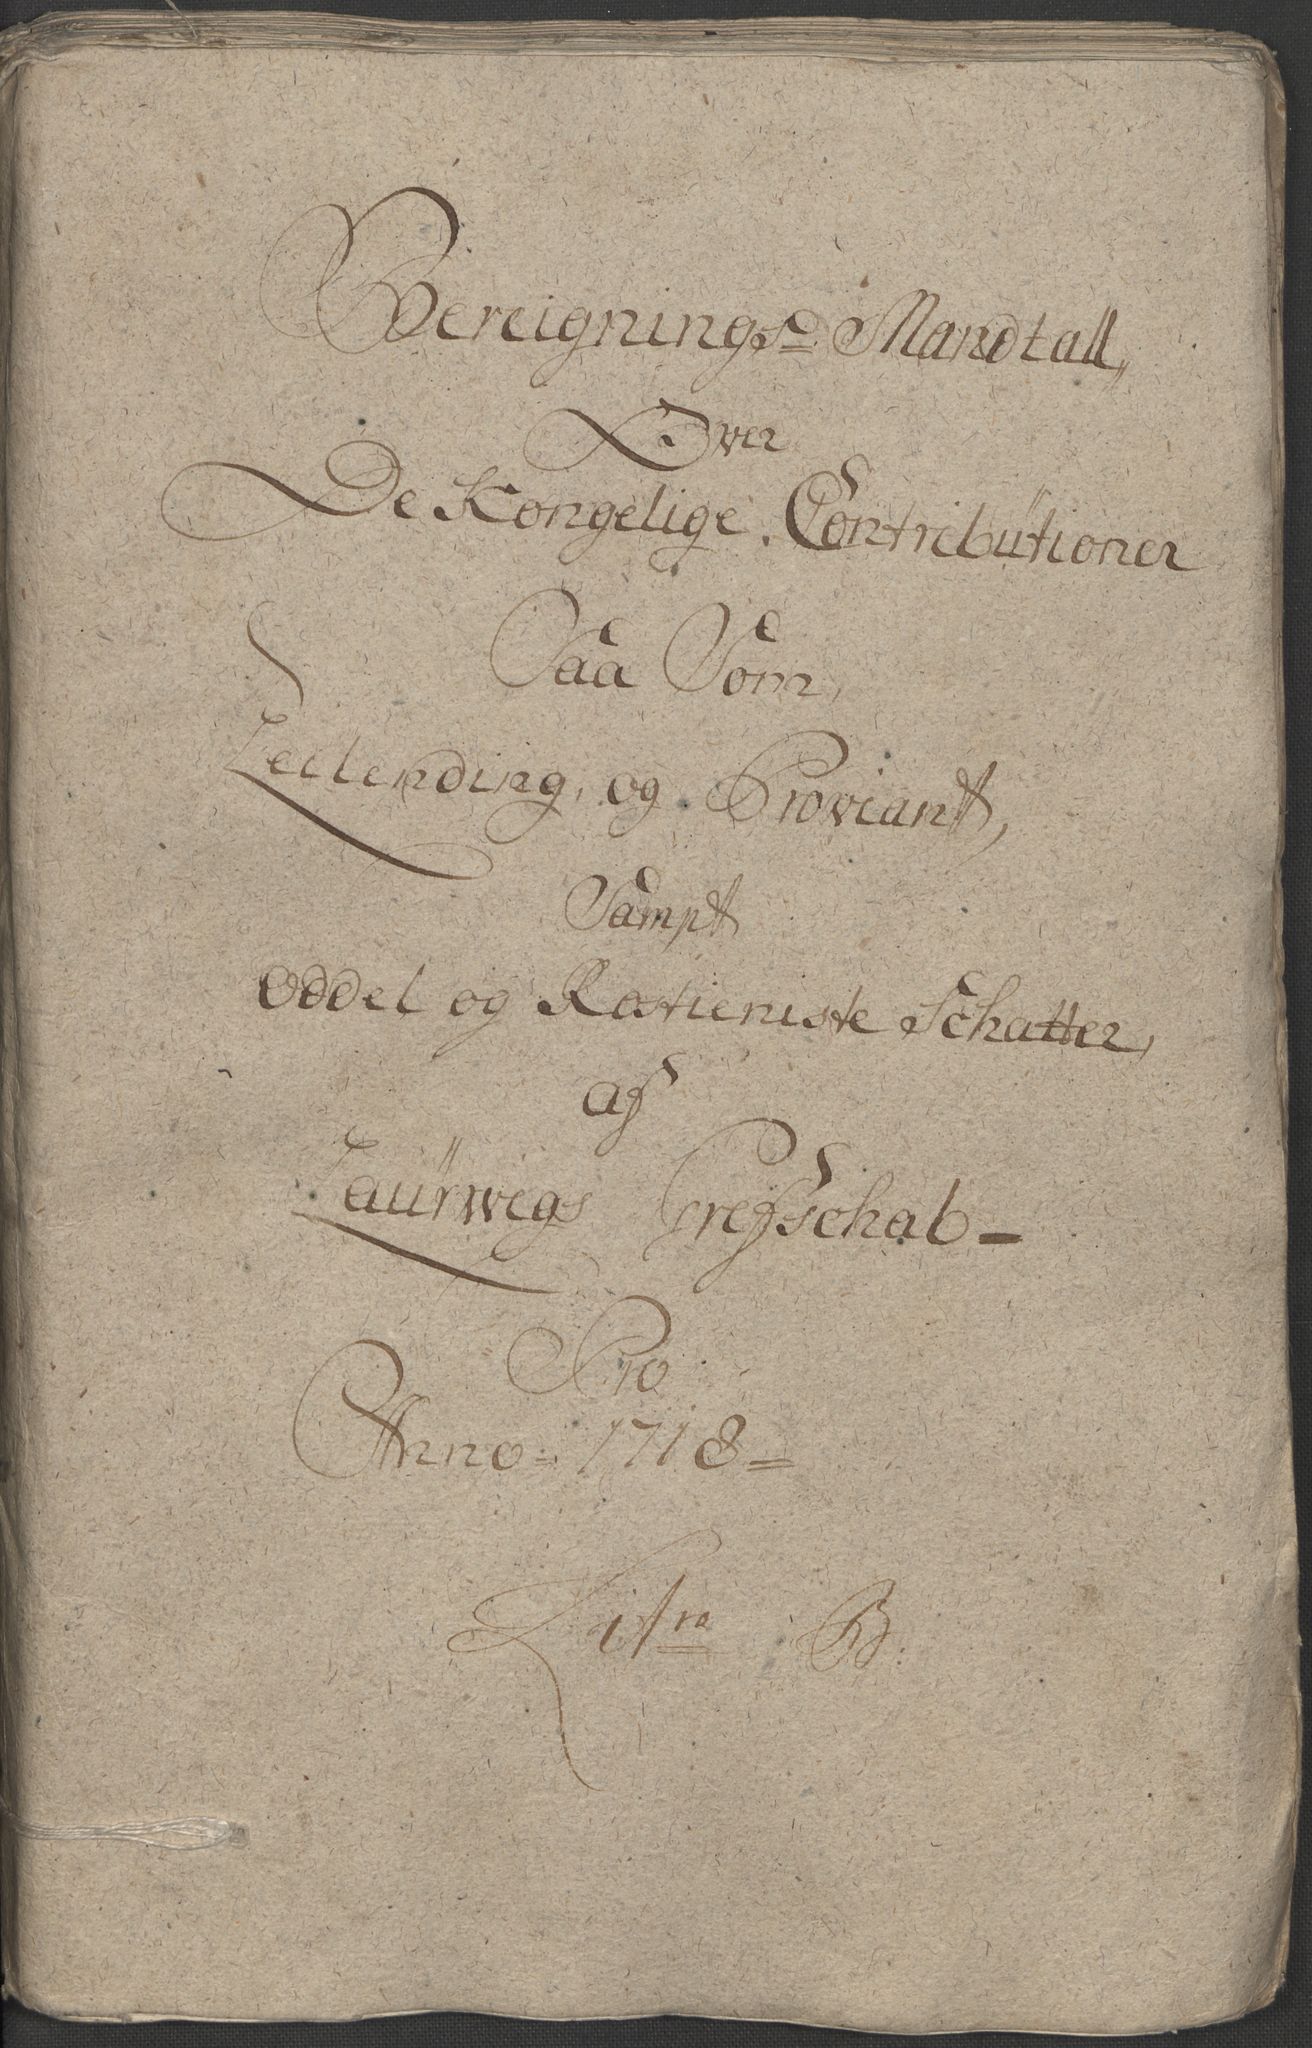 Bereignings Mandtall,
Over
De Kongelige Contributioner
Saa Som,
Leilending, og Proviant,
Sampt
Oddel og Rostieniste Schatter,
af
Laurwigs Grefschab-
Pro
Anno 1718
Litra B.